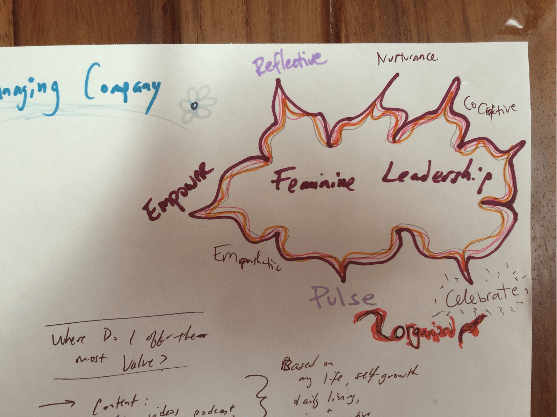 naging Company
Reflective
Nurturance
Feminine Leadership
EMPOWER
Empathetic
Pulse
Celebrate
organized
Where Do I offer the
most Value?
Content:
videos, podcast,
Based on
my life, self-growth
daily living,